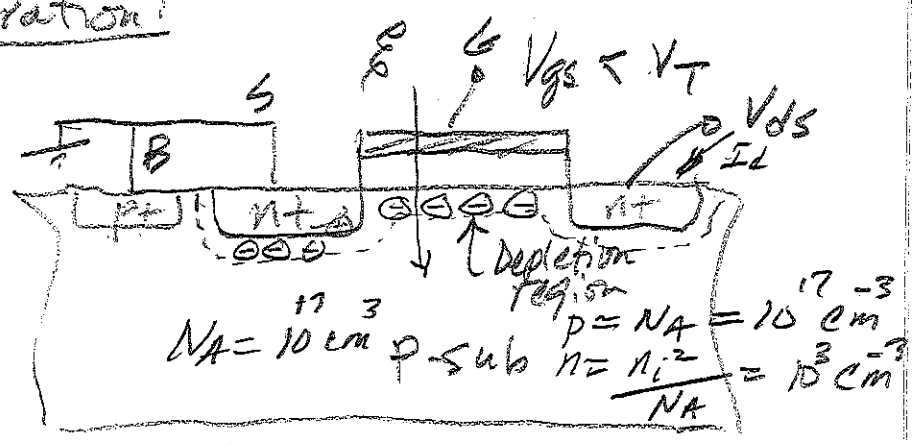 ration:
G Vgs < VT
S ℰ
B Vds
Id
p+ n+ ⊖ ⊖ ⊖ ⊖ n+
⊖ ⊖ ⊖
Depletion
region
NA = 10^+17 cm^3 p-sub p ≃ NA = 10^17 cm^-3
n = ni^2/NA = 10^3 cm^-3